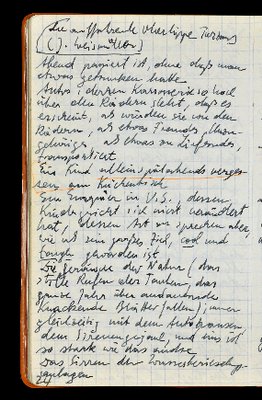 Die auffallende Oberlippe Tarzans
(J. Weismüller)
Abend passiert ist, ohne daß man
etwas getrunken hatte
Autos: deren Karosserie so hoch
über den Rädern steht, daß es
erscheint, als würden sie von den
Rädern, als etwas Fremdes,
als etwas zu Lieferndes,
transportiert
Ein Kind allein spätabends verges-
sen am Küchentisch
Ein in U.S., dessen
Kindergesicht sich nicht verändert
hat, dessen Art zu sprechen aber,
wie als sein großes Ziel, cool und
tough geworden ist
Die Geräusche der Natur (das
Rufen der Tauben, das
ganze Jahr über andauernde
Knackende Blätterfallen), immer
gleichzeitig mit dem Autobrausen,
dem Sirenengejaul, und uns ist
so stark wie das andre
Das Sirren der
anlagen
24